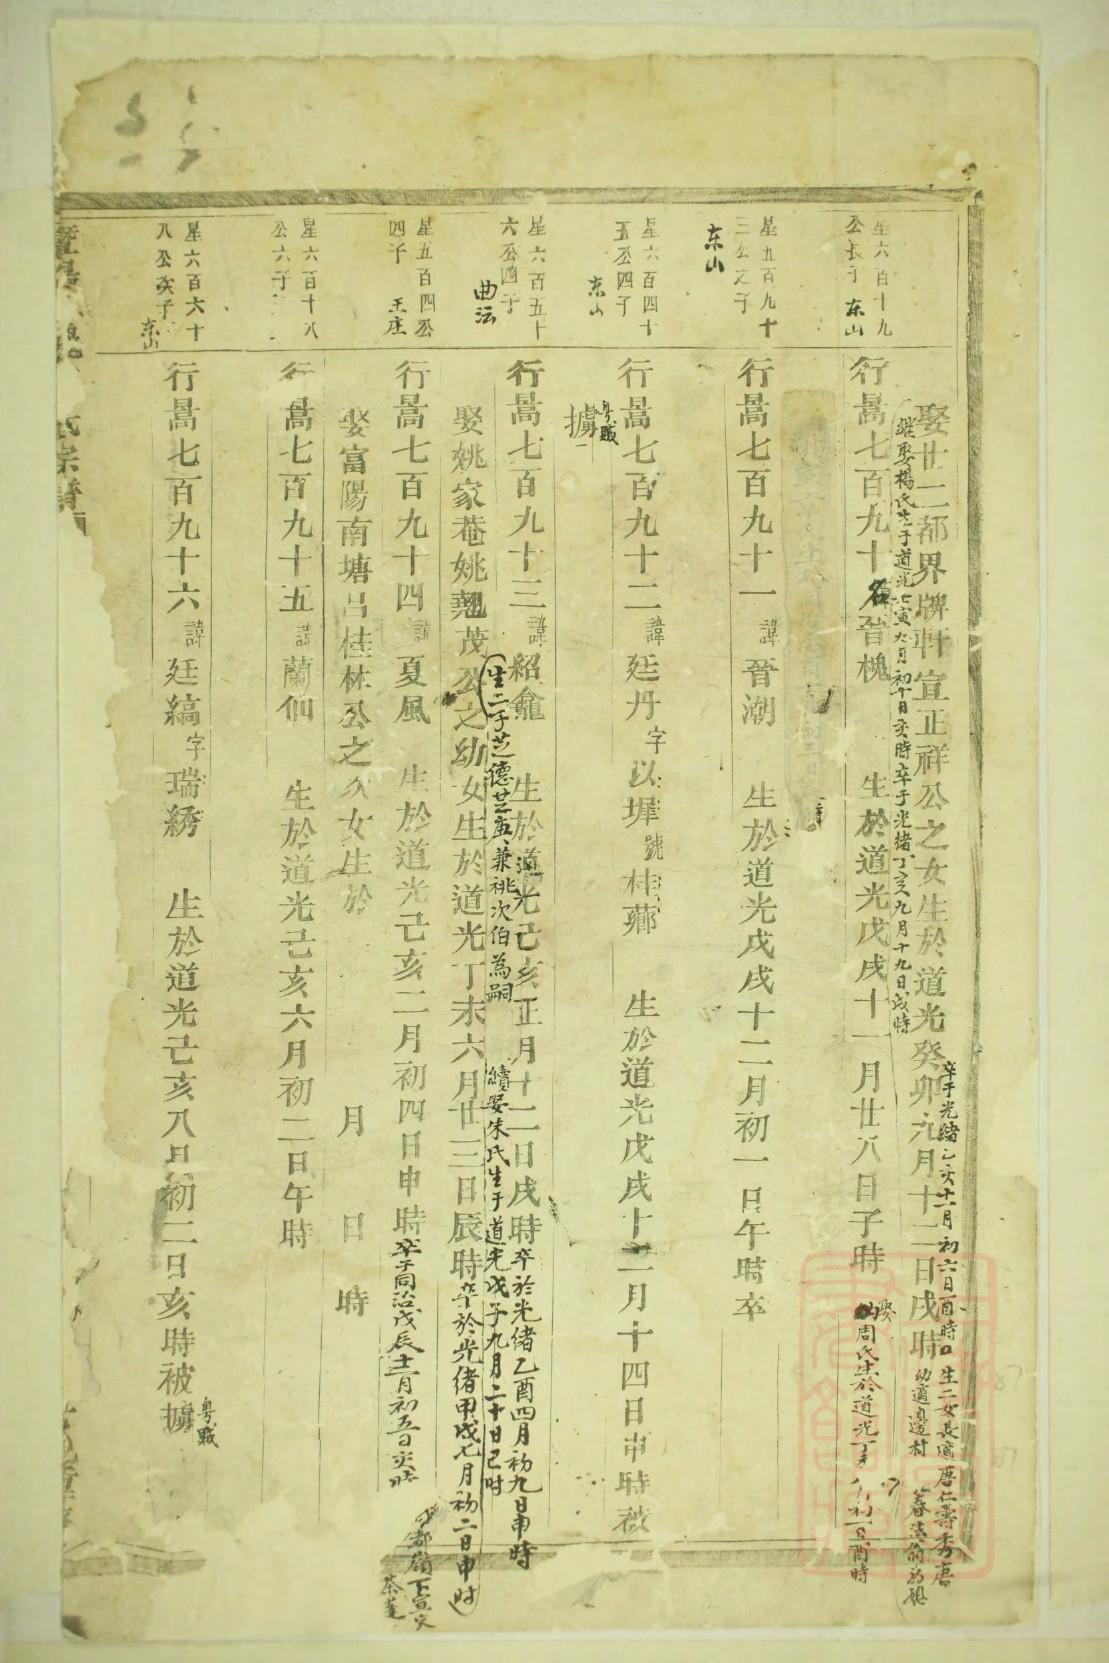 娶廿二都界牌軒宣正祥公之女生於道光癸卯九月十一日戌時
卒于光緒乙亥十一月初六日酉時
生二女長適唐仁壽秀唐
幼適邊村
繼娶楊氏生于道光 寅九月初十日亥時卒于光緒丁亥九月十九日戌時
星六百十九
公長子 东山
行暠七百九十 名晉槐 生於道光戊戌十一月廿八日子時
娶周氏生於道光丁未八月初一日酉時
星五百九十
三公之子
东山
行暠七百九十一諱晉潮 生於道光戊戌十二月初一日午時卒
星六百四十
五公四子
东山
行暠七百九十二諱廷丹字以墀號桂薌 生於道光戊戌十二月十四日申時被
擄
粵賊
星六百五十
六公四子
曲沄
行暠七百九十三諱紹龕 生於道光己亥正月十二日戌時卒於光緒乙酉四月初九日申時
生二子芝德芝庚兼祧次伯為嗣
續娶朱氏生于道光戊子九月二十日巳时
娶姚家菴姚翹茂公之幼女生於道光丁未六月廿三日辰時卒於光緒甲戌七月初二日申时
星五百四公
四子 王庄
行暠七百九十四諱夏風 生於道光己亥二月初四日申時卒于同治戊辰十二月初五日亥时
娶富陽南塘呂桂林公之次女生於 月 日 時
星六百十八
公六子
行暠七百九十五諱蘭仙 生於道光己亥六月初二日午時
星六百六十
八公次子
东山
行暠七百九十六諱廷縞字瑞綉 生於道光己亥八月初二日亥時被擄
粵賊
氏宗譜